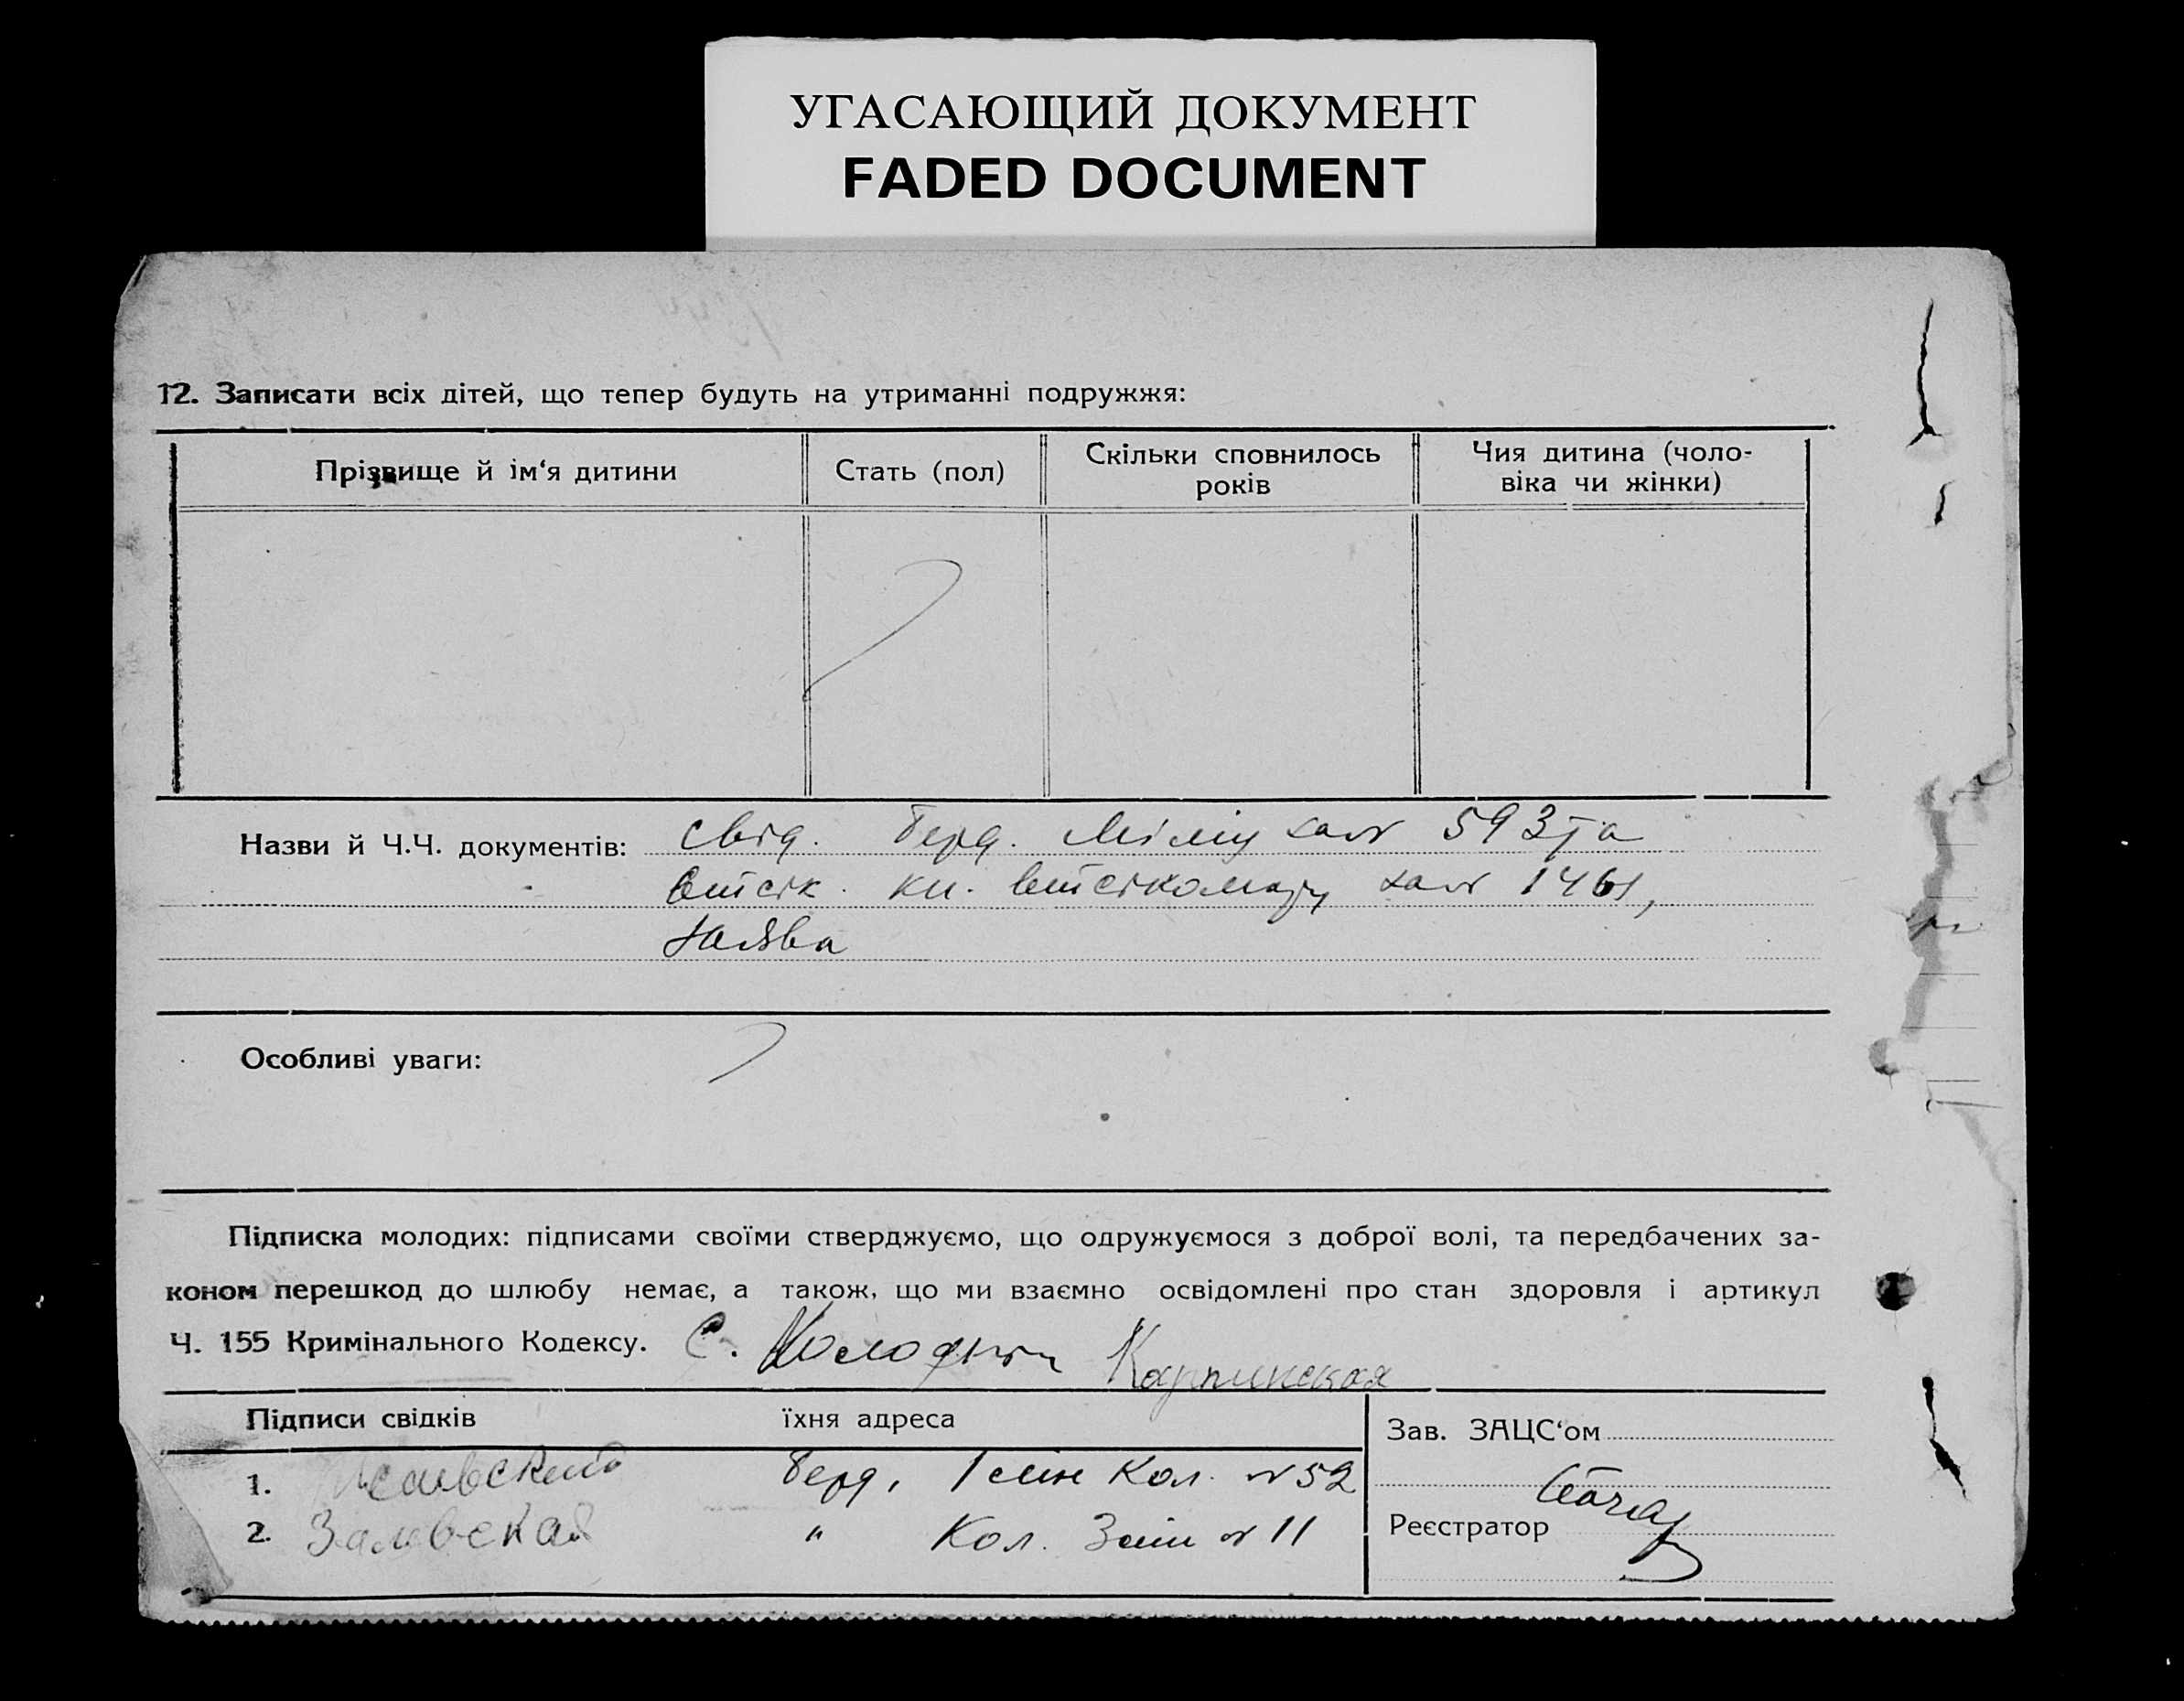 УГАСАЮЩИЙ ДОКУМЕНТ
FADED DOCUMENT
12. Записати всіх дітей, що тепер будуть на утриманні подружжя:
Прізвище й ім‘я дитини
Стать (пол)
Скільки сповнилось
років
Чия дитина (чоло-
віка чи жінки)
Назви й Ч.Ч. документів: свід. Берд. Міліц за № 593 та
війск. кн. війскомату за №
Заява
Особливі уваги:
Підписка молодих: підписами своїми стверджуємо, що одружуємося з доброї волі, та передбачених за-
коном перешкод до шлюбу немає, а також, що ми взаємно освідомлені про стан здоровля і артикул
Ч. 155 Кримінального Кодексу. С. Карпинская
Підписи свідків
їхня адреса
Зав. ЗАЦС‘ом
1. Берд, Кол. № 52
2. " Кол. № 11
Реєстратор